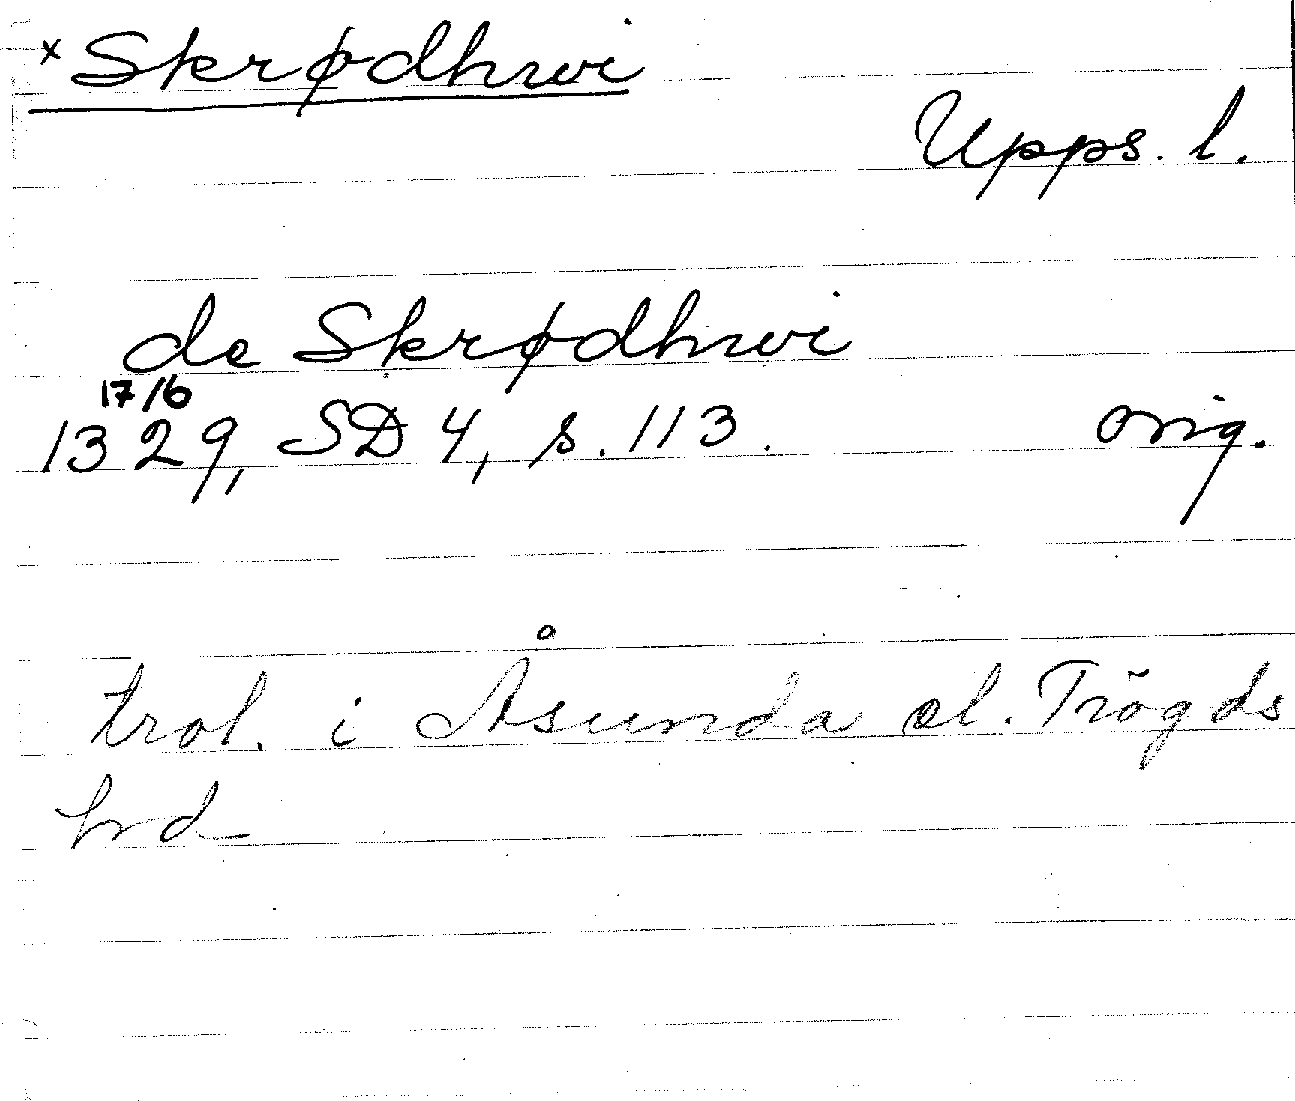 x Skrødhwi
Upps. l.
de Skrødhwi
17/6
1329, SD 4, s. 113. orig.
trol. i Åsunda el. Trögds
hrd